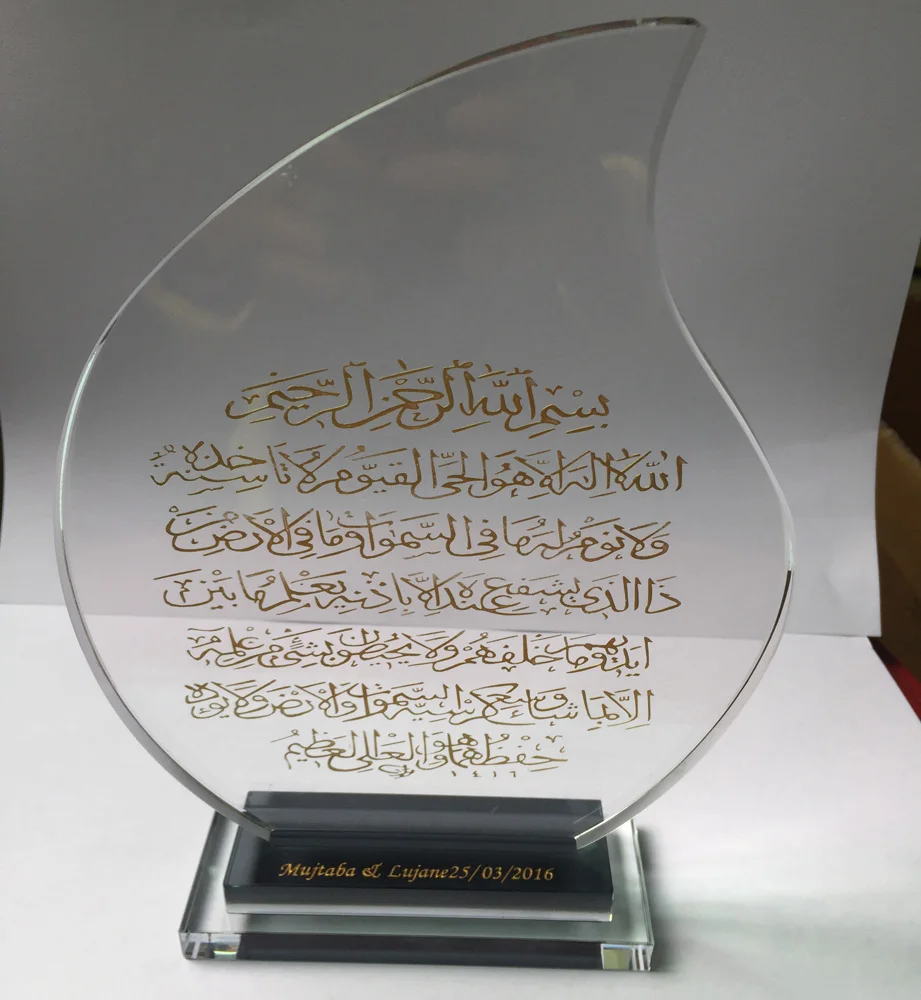 بِسْمِ اللهِ الرَّحْمٰنِ الرَّحِيمِ
الله لا اله الا هو الحى القيوم لا تاخذه سنة
ولا نوم له ما فى السموات وما فى الارض
ذا الذى يشفع عنده الا باذنه يعلم ما بين
ايديهم وما خلفهم ولا يحيطون بشئ من علمه
الا بما شاء وسع كرسيه السموات والارض ولا يوده
حفظهما وهو العلى العظيم
١٤١٦
Mujtaba & Lujane25/03/2016